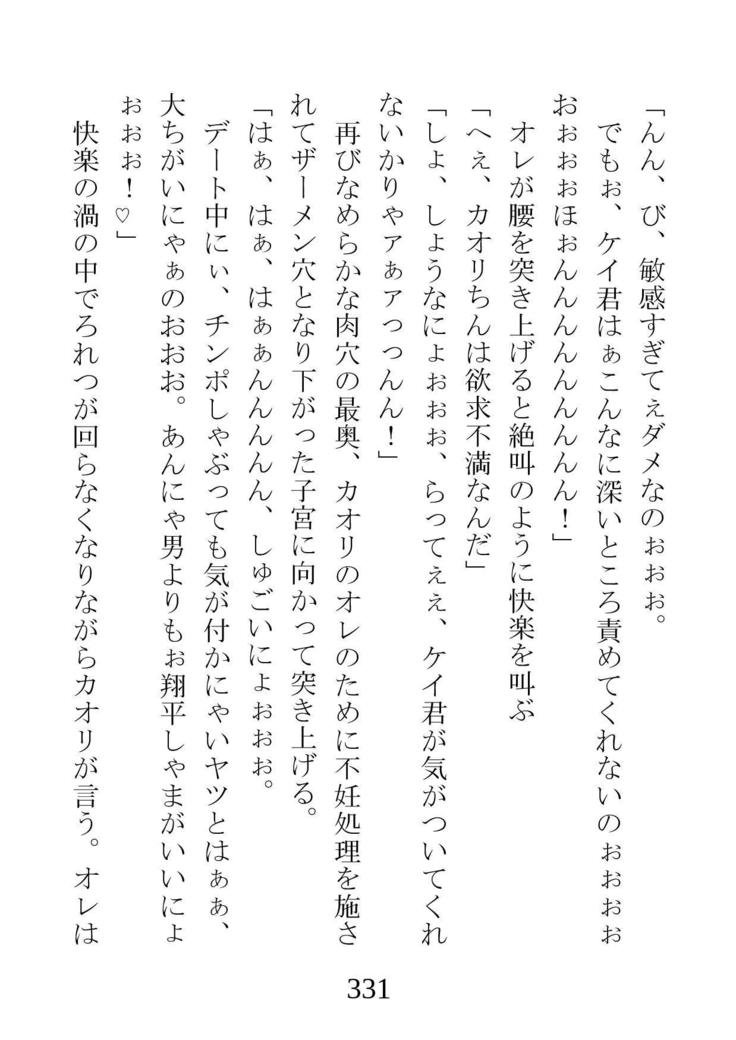 「んん、び、敏感すぎてぇダメなのぉおぉ。
でもぉ、ケイ君はぁこんなに深いところ責めてくれないのぉおぉお
おぉおぉほぉんんんんんんんんん！」
オレが腰を突き上げると絶叫のように快楽を叫ぶ
「へぇ、カオリちんは欲求不満なんだ」
「しょ、しょうなにょぉおぉ、らってぇぇ、ケイ君が気がついてくれ
ないかりゃァぁァっっんん！」
再びなめらかな肉穴の最奥、カオリのオレのために不妊処理を施さ
れてザーメン穴となり下がった子宮に向かって突き上げる。
「はぁ、はぁ、はぁぁんんんんん、しゅごいにょぉおぉ。
デート中にぃ、チンポしゃぶっても気が付かにゃいヤツとはぁぁ、
大ちがいにゃぁのおおお。あんにゃ男よりもぉ翔平しゃまがいいにょ
ぉおぉ！♡」
快楽の渦の中でろれつが回らなくなりながらカオリが言う。オレは
331